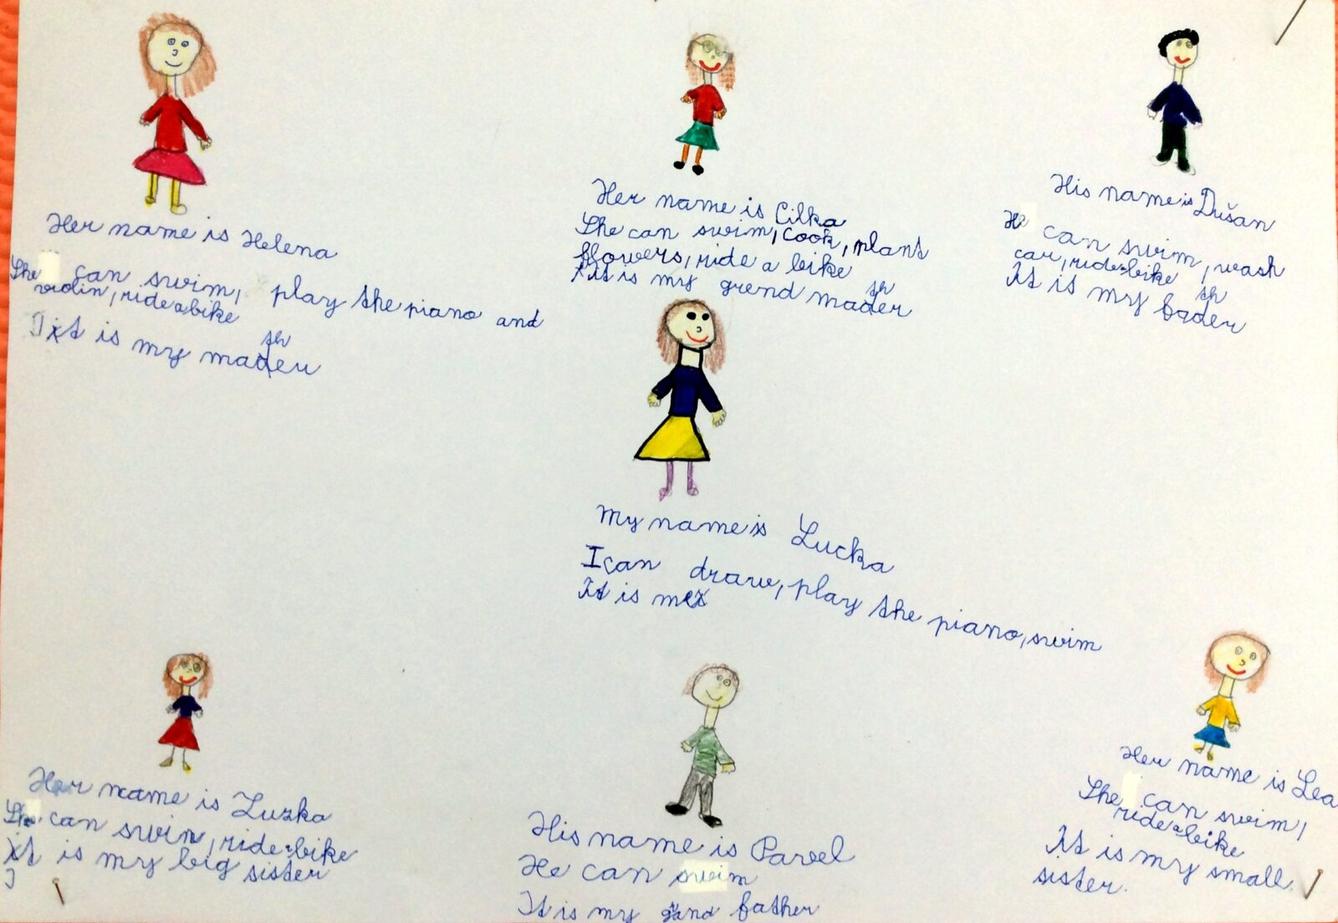 Her name is Helena
She can swim, play the piano and
violin, ride a bike
It is my mather
Her name is Cilka
She can swim, cook, plant
flowers, ride a bike
It is my grend mather
His name is Dušan
He can swim, wash
car, ride a bike
It is my father
My name is Lucka
I can draw, play the piano, swim
It is me
Her name is
She can swim, ride a bike
It is my big sister
His name is Pavel
He can swim
It is my father
Her name is Lea
She can swim,
ride a bike
It is my small
sister.